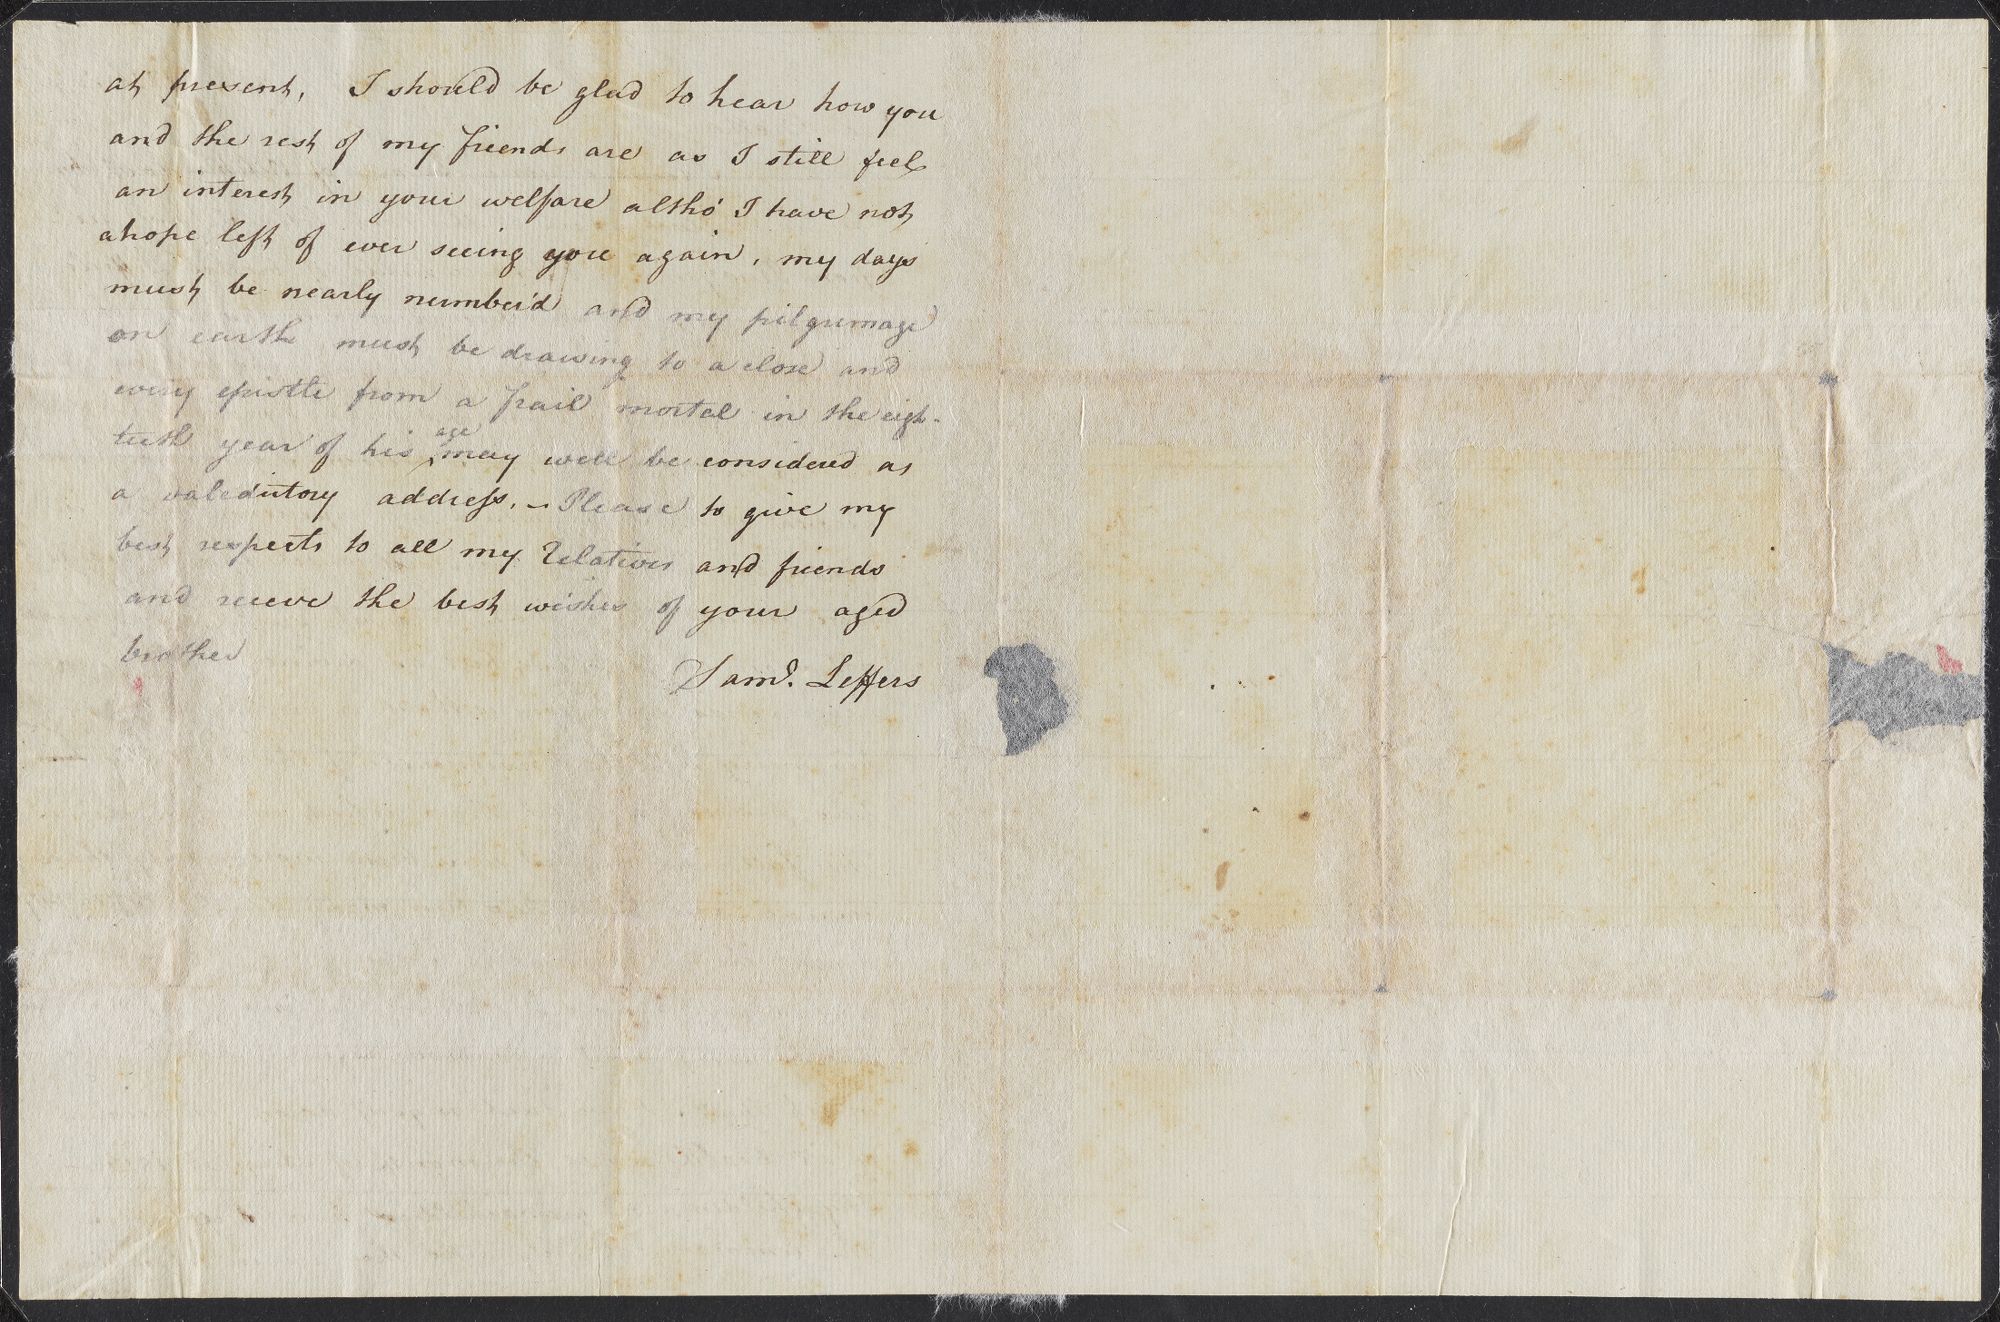 at present, I should be glad to hear how you
and the rest of my friends are as I still feel
an interest in your welfare altho' I have not
a hope left of ever seeing you again, my days
must be nearly number'd and my pilgrimage
on earth must be drawing to a close and
every epistle from a frail mortal in the eigh-
tieth year of his age may well be considered as
a valedictory address. – Please to give my
best respects to all my Relatives and friends
and receve the best wishes of your aged
brother
Saml. Leffers